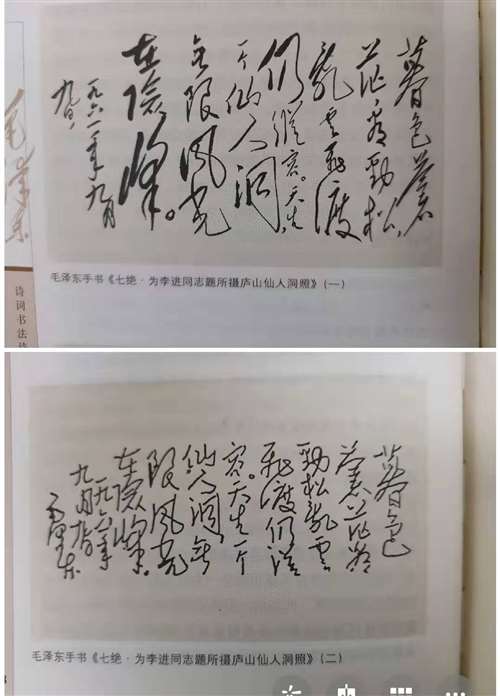 暮色蒼
茫看勁松,
亂云飛渡
仍從容。天生
一个仙人洞,
無限風光
在險峰。
一九六一年九月
九日
毛泽东
诗词书法
毛泽东手书《七绝·为李进同志题所摄庐山仙人洞照》(一)
暮色
蒼茫看
勁松亂云
飛渡仍從
容天生一个
仙人洞無
限風光
在險峰。
一九六一年
九月九日
毛泽东
毛泽东手书《七绝·为李进同志题所摄庐山仙人洞照》(二)